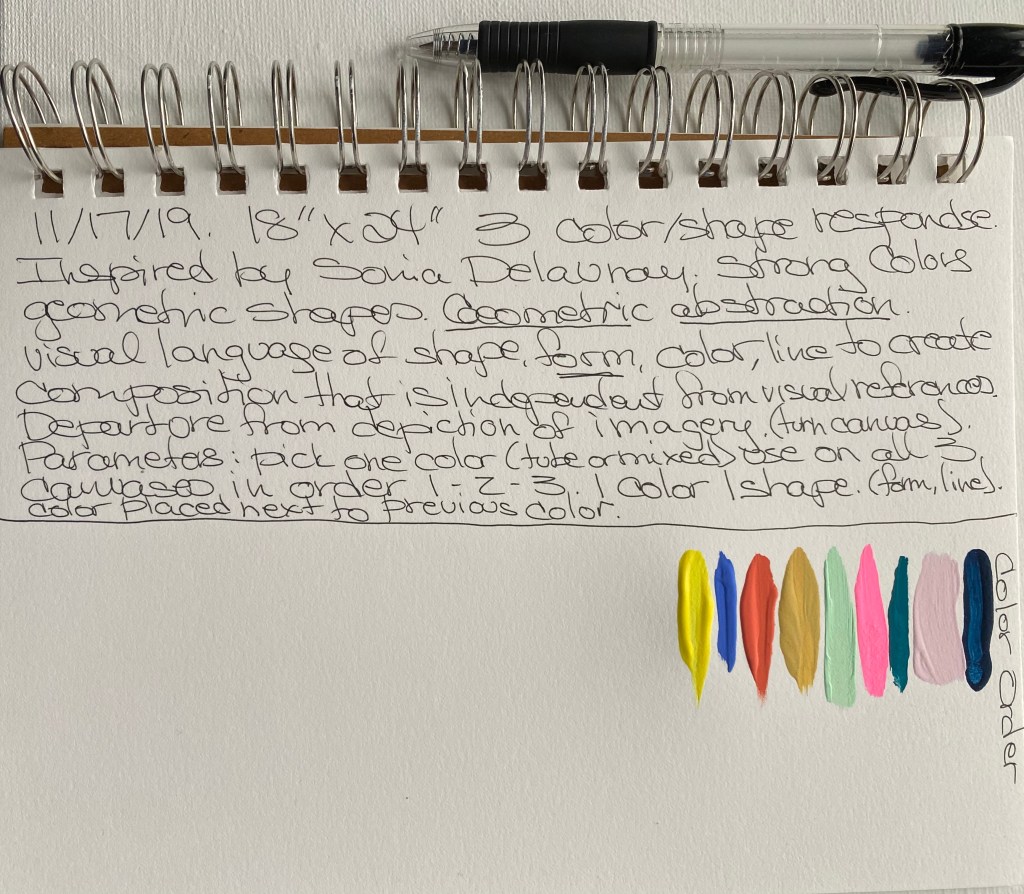 11/17/19. 18" x 24" 3 color/shape respondse.
Inspired by Sonia Delaunay. Strong Colors
geometric shapes. Geometric abstraction.
visual language of shape, form, color, line to create
composition that is independent from visual references.
Departure from depiction of imagery. (turn canvas).
Parameters: pick one color (tube or mixed) use on all 3
canvases in order 1-2-3. 1 color 1 shape. (form, line).
color placed next to previous color.
Color Order